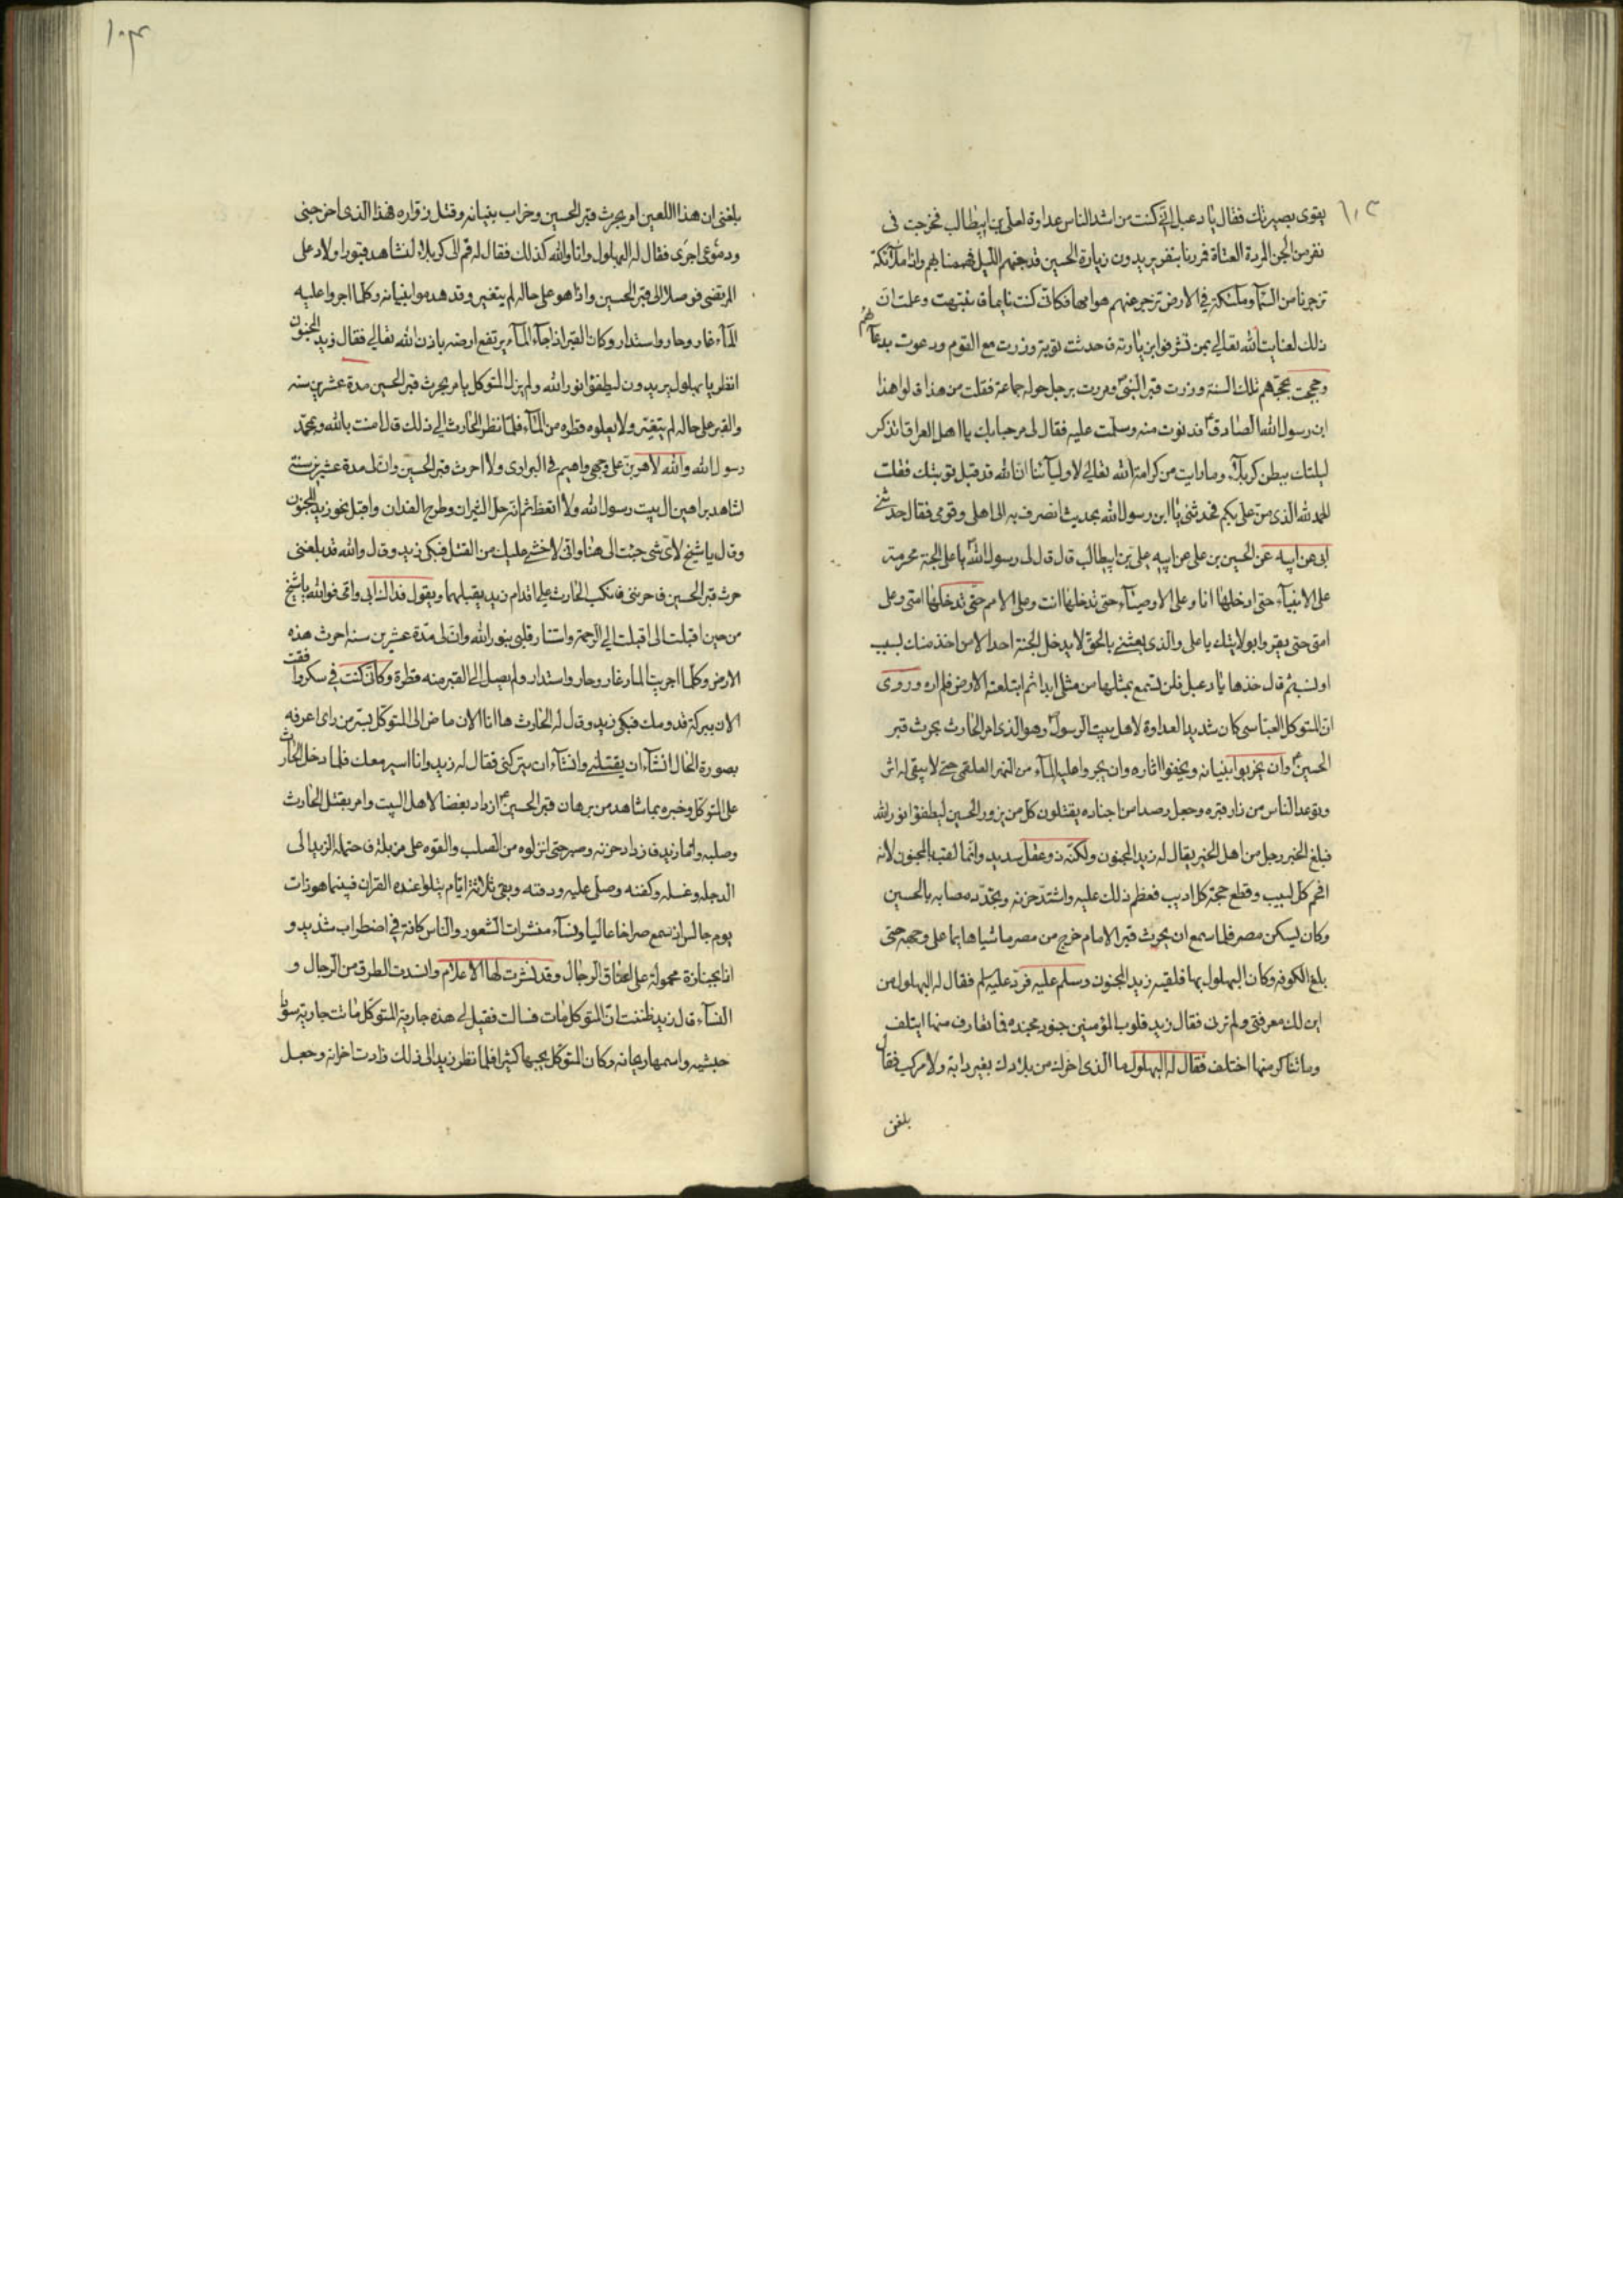 ١٠٣
يقوى بصيرتك فقال يا دعبل انى كنت من اشد الناس عداوة لعلى بن ابيطالب فخرجت فى
نفر من الجن المردة العتاة فمررنا بنفر يريدون زيارة الحسين قد جنهم الليل فهممنا بهم واذا ملآئكة
تزجرنا من السمآ وملئكة في الارض تزجر عنهم هوامها فكانى كنت نايما فانتبهت وعلمت ان
ذلك لعنايت الله تعالى بمن تشرفوا بزيارته فاحدثت توبة وزرت مع القوم ودعوت بدعآئهم
وحججت بحجهم تلك السنة وزرت قبر النبى ومررت برجل حوله جماعة فقلت من هذا قالوا هذا
ابن رسول الله الصادق فدنوت منه وسلمت عليه فقال لى مرحبا بك يا اهل العراق اتذكر
ليلتك ببطن كربلآء وما رايت من كرامة الله تعالى لاوليآئنا ان الله قد قبل توبتك فقلت
الحمد لله الذى من على بكم فحدثنى يا ابن رسول الله بحديث انصرف به الى اهلى وقومى فقال حدثنى
ابى عن ابيه عن الحسين بن على عن ابيه على بن ابيطالب قال قال لى رسول الله يا على الجنة محرمة
على الانبيآء حتى ادخلها انا وعلى الاوصيآء حتى تدخلها انت وعلى الامم حتى تدخلها امتى وعلى
امتى حتى يقروا بولايتك يا على والذى بعثنى بالحق لا يدخل الجنة احدا الا من اخذ منك بسبب
او نسب ثم قال خذها يا دعبل فلن تسمع بمثلها من مثلى ابدا ثم ابتلعته الارض فلم اره وروى
ان المتوكل العباسى كان شديد العداوة لاهل بيت الرسول وهو الذى امر الحارث بحرث قبر
الحسين وان يخربوا بنيانه ويخفوا اثاره وان يجروا عليه المآء من النهر العلقمى حتى لا يبقى له اثر
وتوعد الناس من زار قبره وجعل رصدا من اجناده يقتلون كل من يزور الحسين ليطفؤا نور الله
فبلغ الخبر رجل من اهل الخير يقال له زيد المجنون ولكنه ذو عقل سديد وانما لقب بالمجنون لانه
افحم كل لبيب وقطع حجة كل اديب فعظم ذلك عليه واشتد حزنه وتجدد مصابه بالحسين
وكان يسكن مصر فلما سمع ان يحرث قبر الامام خرج من مصر ماشيا هايما على وجهه حتى
بلغ الكوفه وكان البهلول بها فلقيه زيد المجنون وسلم عليه فرد عليه السلم فقال له البهلول من
اين لك معرفتى ولم ترنى فقال زيد قلوب المؤمنين جنود مجنده فما تعارف منها ايتلف
وما تناكر منها اختلف فقال له البهلول ما الذى اخرجك من بلادك بغير دابة ولا مركب فقال
بلغنى
١٠٤
بلغنى ان هذا اللعين امر بحرث قبر الحسين وخراب بنيانه وقتل زواره فهذا الذى اخرجنى
ودموعى اجرى فقال له البهلول وانا والله كذلك فقال له قم الى كربلا لنشاهد قبور اولاد على
المرتضى فوصلا الى قبر الحسين واذا هو على حاله لم يتغير وقد هدموا بنيانه وكلما اجروا عليه
المآء غار وحار واستدار وكان القبر اذا جآء المآء يرتفع ارضه باذن الله تعالى فقال زيد المجنون
انظر يا بهلول يريدون ليطفؤا نور الله ولم يزل المتوكل يامر بحرث قبر الحسين مدة عشرين سنه
والقبر على حاله لم يتغير ولا يعلوه قطرة من المآء فلما نظر الحارث الى ذلك قال امنت بالله وبمحمد
رسول الله والله لاهربن على وجهى واهيم فى البوارى ولا احرث قبر الحسين وان لى مدة عشرين سنة
اشاهد براهين ال بيت رسول الله ولا اتعظ ثم انه حل الثيران وطرح الفدان واقبل نحو زيد المجنون
وقال يا شيخ لاى شى جئت الى هنا وانى لاخشى عليك من القتل فبكى زيد وقال والله قد بلغنى
حرث قبر الحسين فاحزننى فانكب الحارث على اقدام زيد يقبلهما ويقول فداك ابى وامى فوالله يا شيخ
من حين اقبلت الى اقبلت الى الرحمة واستنار قلبى بنور الله وان لى مدة عشرين سنه احرث هذه
الارض وكلما اجريت المآء غار وحار واستدار ولم يصل الى القبر منه قطرة وكانى كنت فى سكر وافقت
الان ببركة قدومك فبكى زيد وقال له الحارث ها انا الان ماض الى المتوكل بسر من راى اعرفه
بصورة الحال انشآء ان يقتلنى وانشآء ان يتركنى فقال له زيد وانا اسير معك فلما دخل الحارث
على المتوكل وخبره بما شاهد من برهان قبر الحسين ازداد بغضا لاهل البيت وامر بقتل الحارث
وصلبه واما زيد فازداد حزنه وصبر حتى انزلوه من الصلب والقوه على مزبلة فاحتمله الزيد الى
الدجله وغسله وكفنه وصلى عليه ودفنه وبقى ثلاثة ايام يتلوا عنده القران فبينما هو ذات
يوم جالس اذ سمع صراخا عاليا ونسآء منشرات الشعور والناس كافة فى اضطراب شديد و
اذا بجنازة محمولة على اعناق الرجال وقد نشرت لها الاعلام وانسدت الطرق من الرجال و
النسآء قال زيد ظننت ان المتوكل مات فسالت فقيل لى هذه جارية المتوكل ماتت جارية سودا
حبشيه واسمها ريحانه وكان المتوكل يحبها كثيرا فلما نظر زيد الى ذلك زادت احزانه وجعل